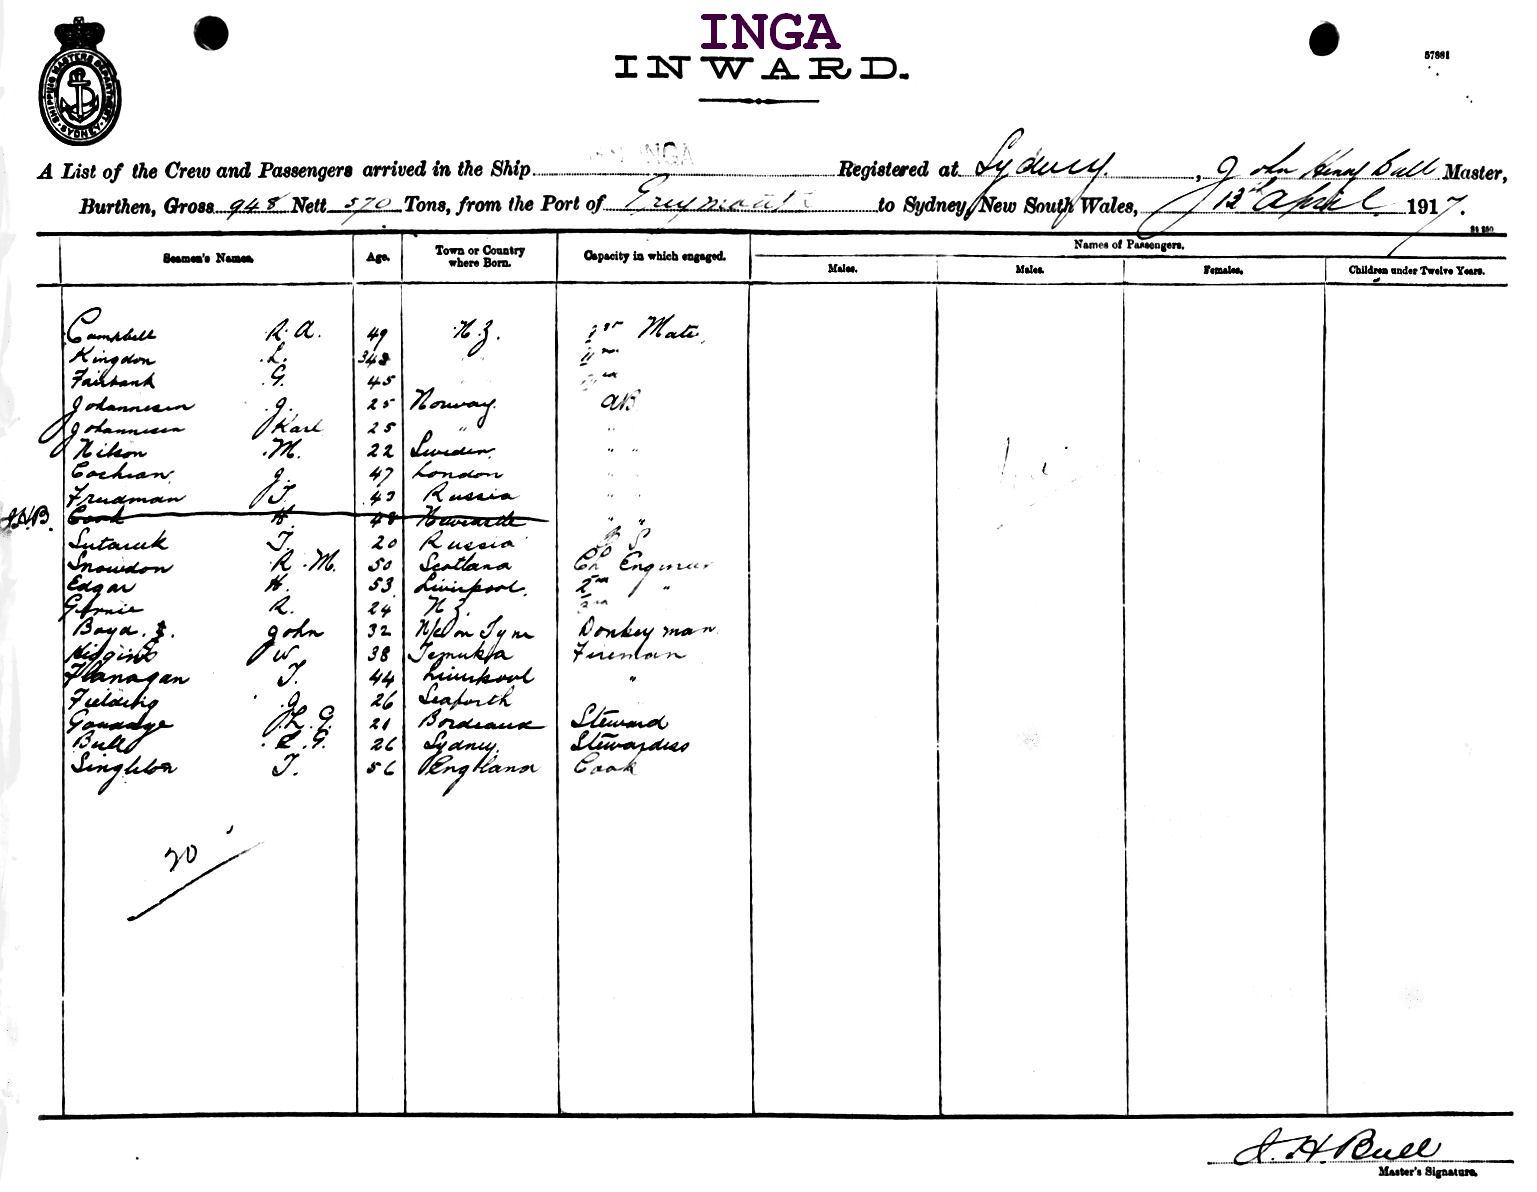 INGA
INWARD.
57881
SHIPPING MASTERS DEPARTMENT SYDNEY
A List of the Crew and Passengers arrived in the Ship INGA Registered at Sydney, John Henry Bull Master,
Burthen, Gross 948 Nett 570 Tons, from the Port of Greymouth to Sydney, New South Wales, 12th April 1917.
Seamen's Names. Age. Town or Country where Born. Capacity in which engaged. Names of Passengers.
Males. Males. Females. Children under Twelve Years.
Campbell R. A. 49 N.Z. 1st Mate
Kingdon L.
Fairbank G. 45
Johannesen J. 25 Norway AB
Johannesen Karl 25 "
Nilson M. 22 Sweden " "
Cochran J. 47 London "
Freedman T. 43 Russia "
J.H.B. Cook H. 48 Newcastle " "
T. 20 Russia
Snowdon R. M. 50 Scotland Ch Engineer
Edgar H. 53 Liverpool 2nd "
R. 24 N.Z. 3rd
Boyd John 32 N/C on Tyne Donkeyman
Higgins W 38 Temuka Fireman
Flanagan T. 44 Liverpool "
Fielding J. 26 Seaforth
L. G. 21 Bordeaux Steward
Bull G. 26 Sydney Stewardess
Singleton T. 56 England Cook
20
J. H. Bull
Master's Signature.